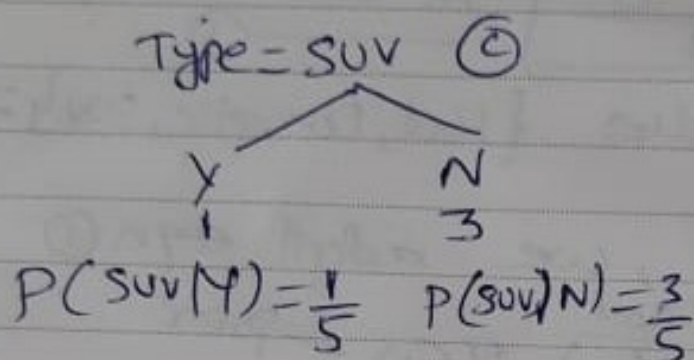 Type = SUV (C)
Y N
1 3
P(SUV|Y) = 1/5 P(SUV|N) = 3/5